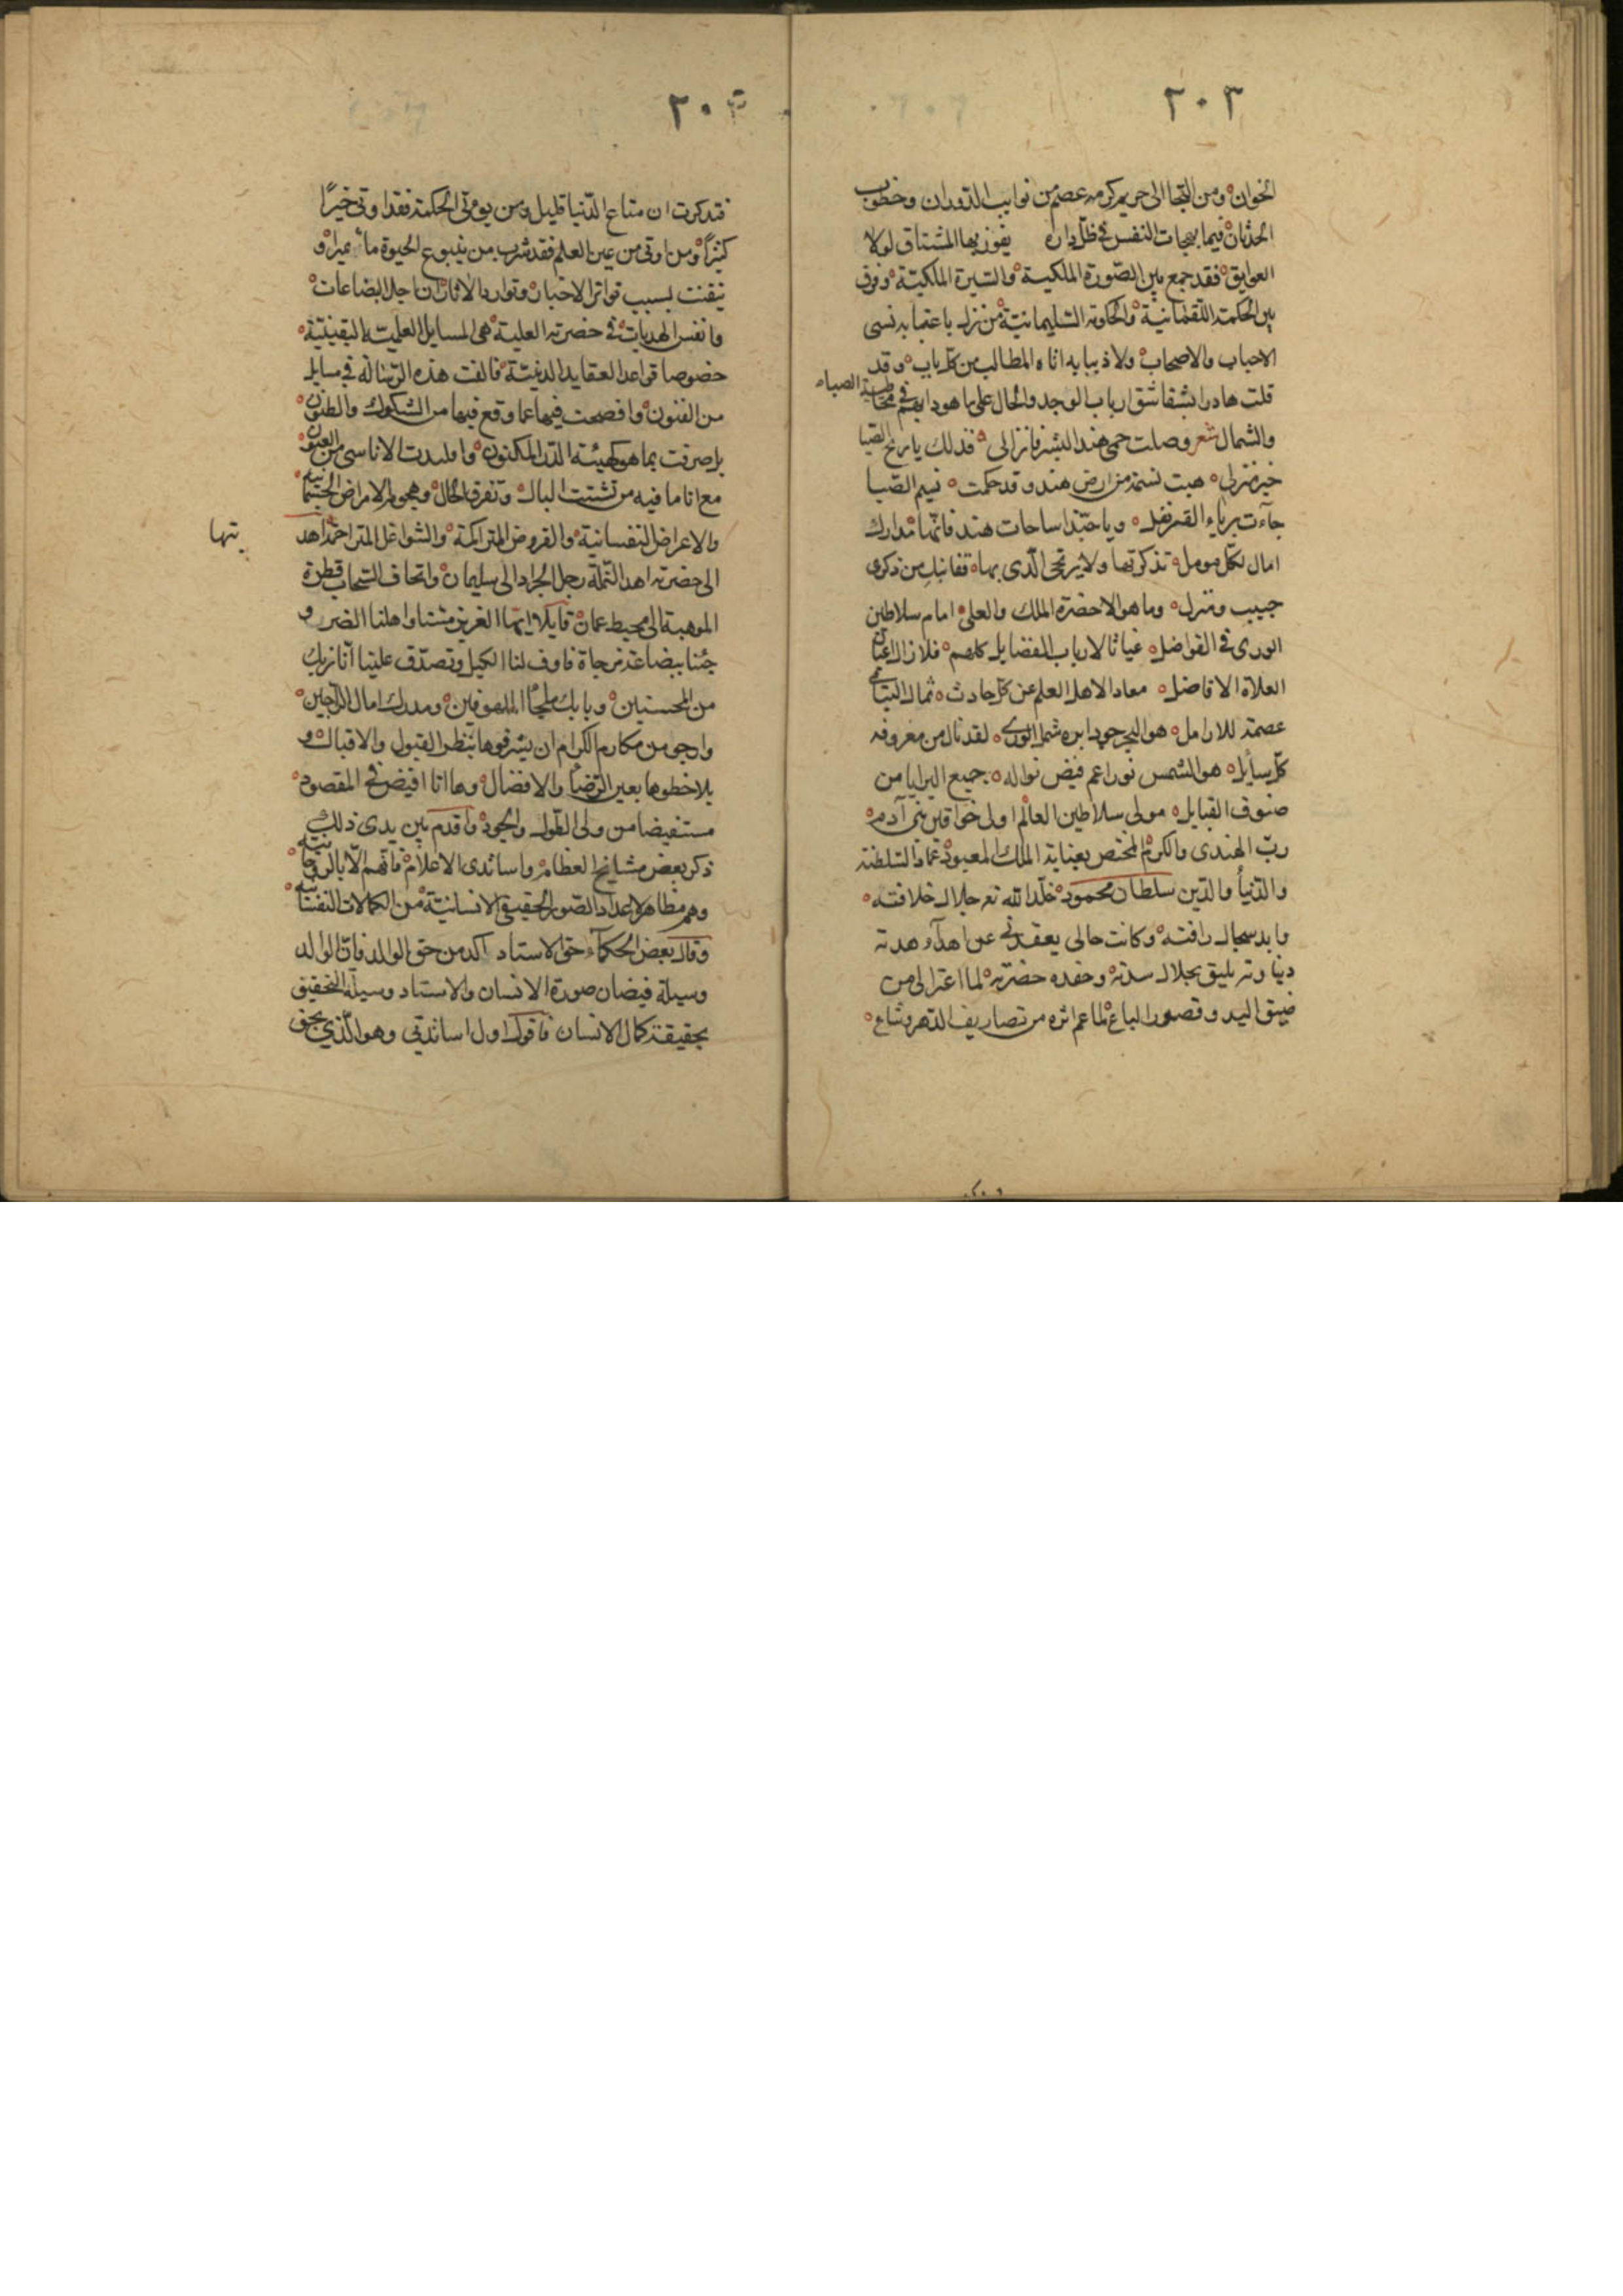 ٢٠٣
الخوان ومن التجا الى حريم كرمه عصم من نوايب الدوران وخطوب
الحدثان فيما بهجات النفس في ظل داره يفوز بها المشتاق لولا
العوايق فقد جمع بين الصورة الملكية والسيرة الملكية ووفق
بين الحكمة اللقمانية والحكومة السليمانية من نزل باعتابه نسى
الاحباب والاصحاب ولاذ ببابه اتاه المطالب من كل باب وقد
قلت هادرا بشقاشق ارباب الوجد والحال على ما هو دابهم في مخاطبة الصباء
والشمال شعر وصلت حمى هند البشر فانزالى فذلك يا ريح الصبا
خير منزلى هبت نسمة من ارض هند وقد حكمت نسيم الصبا
جآءت برياء القرنفل ويا حبذا ساحات هند فانها مدارك
امال لكل مومل تذكرتها ولا يرتجى الذى بها قفا نبك من ذكرى
حبيب ومنزل وما هو الا حضرة الملك والعلى امام سلاطين
الورى في الفواضل غياثا لارباب الفضايل كلهم فلا زال اعيان
العلاه الافاضل معاد الاهل العلم عن كل حادث ثمال اليتامى
عصمة للارامل هو البحر جودا بره شمل الورى لقد نال من معروفه
كل سايل هو الشمس نورا عم فيض نواله جميع البرايا من
صنوف القبايل مولى سلاطين العالم اولى خواقين بنى آدم
رب الهندى والكرم المختص بعناية الملك المعبود عماد السلطنة
والدنيا والدين سلطان محمود خلد الله تع جلال خلافته
وابد سجال رافته وكانت حالى يعقدنى عن اهدآء هدية
دنياوية يليق بجلال سدته وحفده حضرته لما اعترالى من
ضيق اليد وقصور الباع لما عم اثره من تصاريف الدهر وشاع
٢٠٤
فتذكرت ان متاع الدنيا قليل ومن يؤتى الحكمة فقد اوتى خيرًا
كثيرًا ومن اوتى من عين العلم فقد شرب من ينبوع الحيوة ماء نميرا و
تيقنت بسبب تواتر الاخبار وتوارد الاثار ان اجل البضاعات
وانفس الهديات في حضرته العلية هى المسايل العلمية اليقينية
خصوصا قواعد العقايد الدينية فالفت هذه الرسالة في مسايل
من الفنون وافصحت فيها عما وقع فيها من الشكوك والظنون
بل صرفت بما هو كهيئة الدر المكنون وما بدت الاناسى من العيون
مع انا ما فيه من تشتت البال وتفرق الحال وهجوم الامراض الجسمانية
والاعراض النفسانية والقروض المتراكمة والشواغل المتزاحمة اهد
يتها
الى حضرته اهدا النملة رجل الجراد الى سليمان واتحاف السحاب قطرة
الموهبة الى محيط عمان قايلا ايها العزيز مسنا واهلنا الضر و
جئنا ببضاعة مزجاة فاوف لنا الكيل وتصدق علينا انا نريك
من المحسنين وبابك ملجأ الملهوفين ومدرك امال الراجين
وارجو من مكارم الكرام ان يشرفوها بنظر القبول والاقبال و
يلاحظوها بعين الرضا والافضال وها انا افيض في المقصود
مستفيضا من ولى الطول والجود واقدم بين يدى ذلك
ذكر بعض مشايخ العظام واساتذى الاعلام فانهم الابا الروحانية
وهم مظاهر لاعداد الصور الحقيقى الانسانية من الكمالات النفسانية
وقال بعض الحكمآء حق الاستاد آكد من حق الوالد فان الوالد
وسيلة فيضان صورة الانسان والاستاد وسيلة التحقيق
بحقيقة كمال الانسان فاقول اول اساتذتي وهو الذي بحق